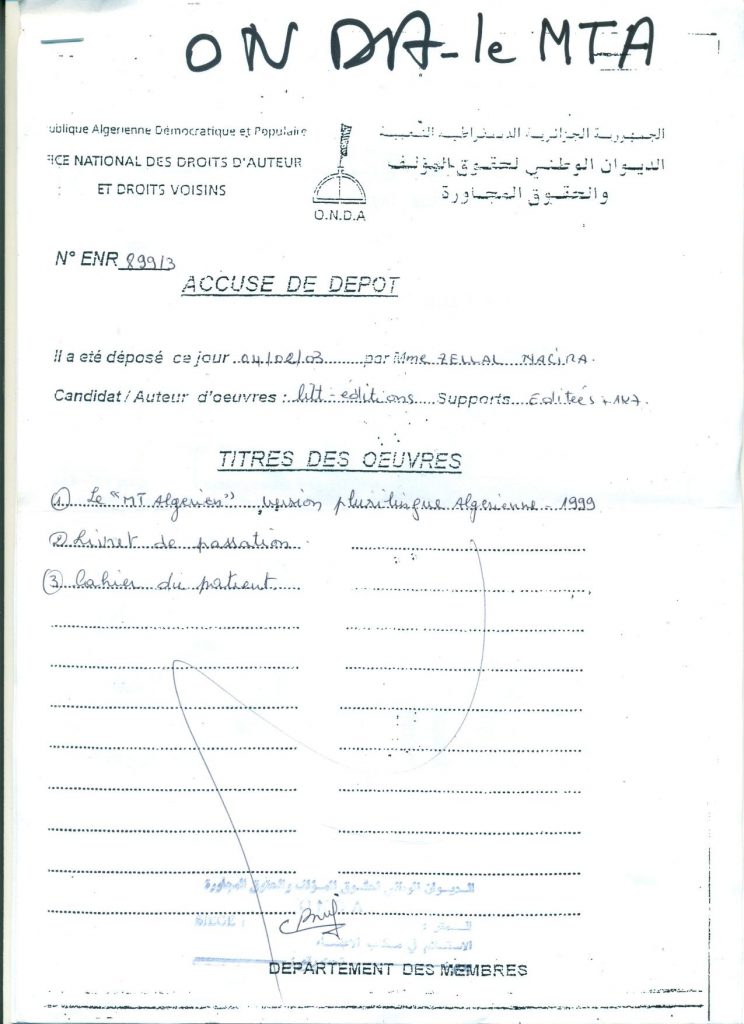 ONDA - le MTA
ublique Algerienne Démocratique et Populaire
ICE NATIONAL DES DROITS D'AUTEUR
ET DROITS VOISINS
O.N.D.A
الجمهورية الجزائرية الديمقراطية الشعبية
الديوان الوطني لحقوق المؤلف
والحقوق المجاورة
N° ENR 899/3
ACCUSE DE DEPOT
Il a eté déposé ce jour 04/02/03 par Mme ZELLAL NACIRA.
Candidat / Auteur d'oeuvres : litt - éditions Supports Editées
TITRES DES OEUVRES
① Le "MT Algérien" version plurilingue Algérienne - 1999
② Livret de passation
③ Cahier du patient
الديوان الوطني لحقوق المؤلف والحقوق المجاورة
SIEGE :
DEPARTEMENT DES MEMBRES